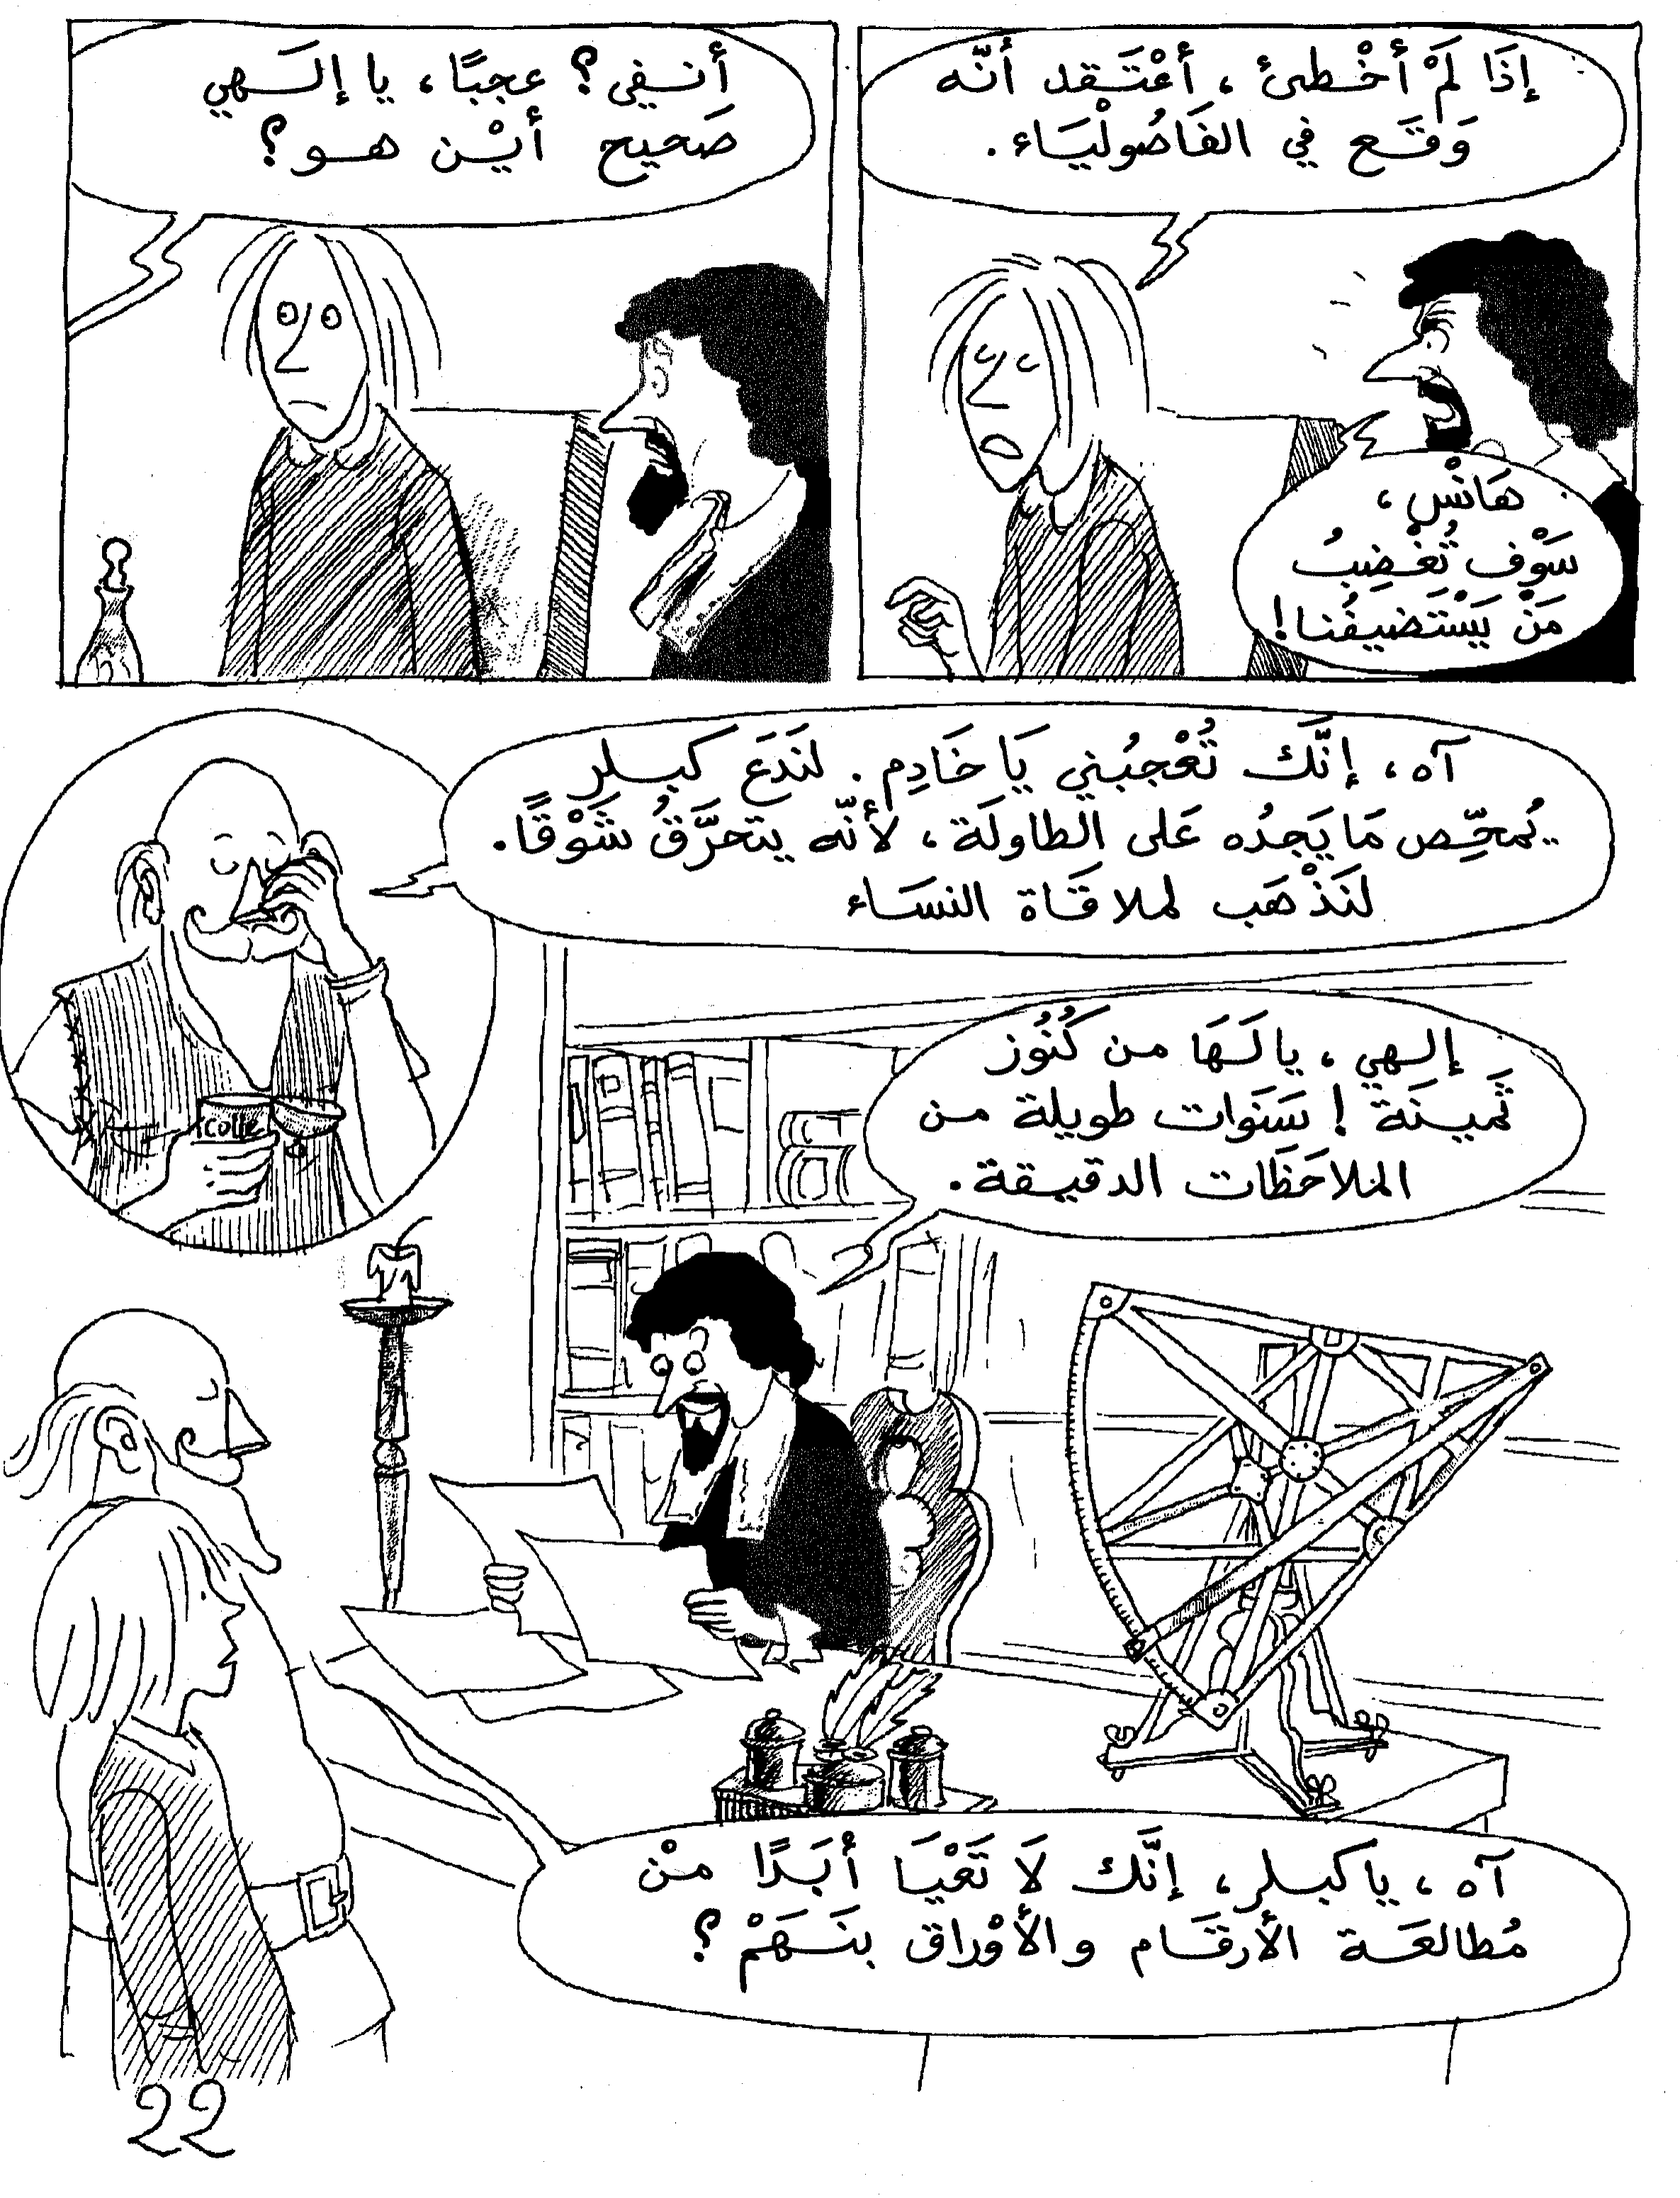 إِذَا لَمْ أَخْطئ ، أَعْتَقد أنّه
وَقَع في الفَاصُولْيَاء .
هَانْس ،
سَوْف تُغْضِبُ
مَنْ يَسْتَضيفُنا !
أنفي ؟ عجبًا ، يا إلَهي
صَحيح أيْن هو ؟
آه ، إنَّك تُعْجبُني يَا خَادِم . لنَدَع كيبلر
يُمحِّص مَا يَجدُه عَلى الطاولَة ، لأنّه يتحرَّقُ شَوْقًا .
لنَذْهَب لملاقَاة النسَاء
colle
إلهي ، يا لَهَا من كُنُوز
ثَمينَة ! سَنَوات طويلة من
الملاحَظَات الدقيقة .
آه ، يا كيبلر ، إنَّك لاَ تَعْيَا أبَدًا منْ
مُطالعَة الأرقَام والأوْراق بنَهَمْ ؟
22